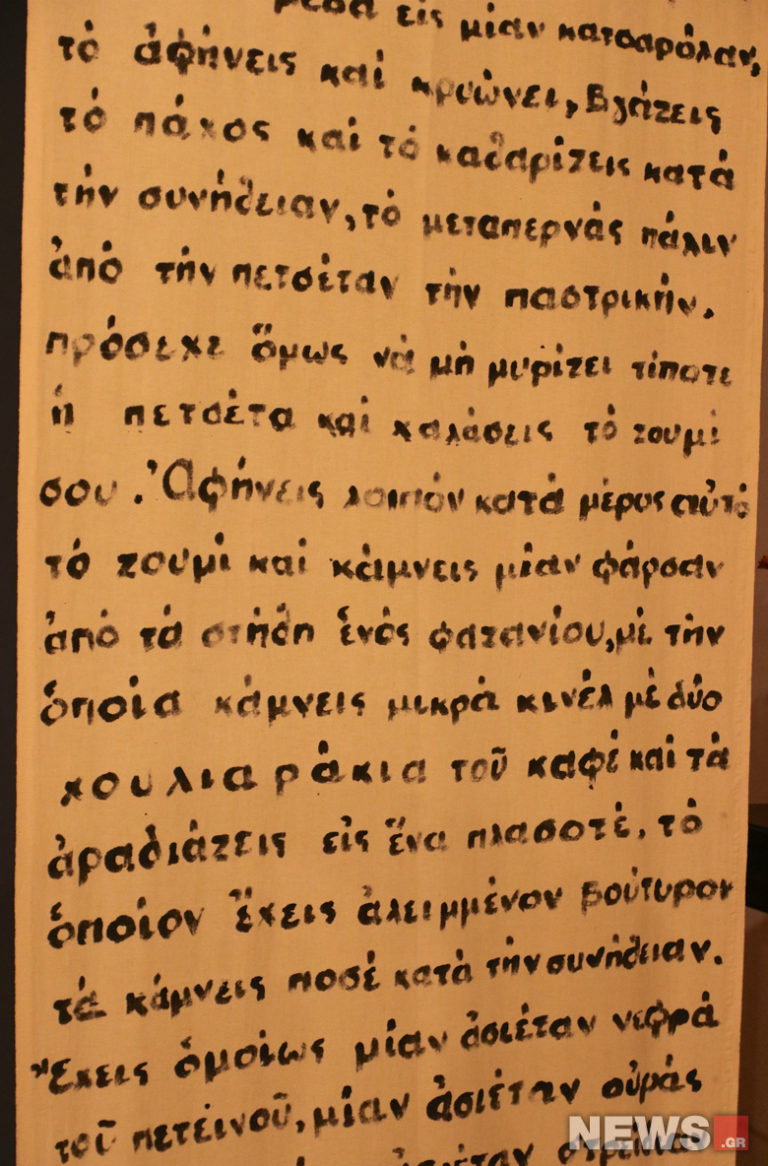 μέσα εἰς μίαν κατσαρόλαν,
τό ἀφήνεις καί κρυώνει, βγάζεις
τό πάχος καί τό καθαρίζεις κατά
τήν συνήθειαν, τό μεταπερνάς πάλιν
ἀπό τήν πετσέταν τήν παστρικήν.
πρόσεχε ὅμως νά μή μυρίζει τίποτε
ἡ πετσέτα καί χαλάσεις τό ζουμί
σου. Ἀφήνεις λοιπόν κατά μέρος αὐτό
τό ζουμί καί κάμνεις μίαν φάρσαν
ἀπό τά στήθη ἑνός φαζανίου, μέ τήν
ὁποία κάμνεις μικρά κινέλ μέ δύο
χουλιαράκια τοῦ καφέ καί τά
ἀραδιάζεις εἰς ἕνα πλασοτέ, τό
ὁποίον ἔχεις ἀλειμμένον βούτυρον
τά κάμνεις ποσέ κατά τήν συνήθειαν.
Ἔχεις ὁμοίως μίαν ἀσιέταν νεφρά
τοῦ πετεινοῦ, μίαν ἀσιέταν οὐράς
NEWS.GR